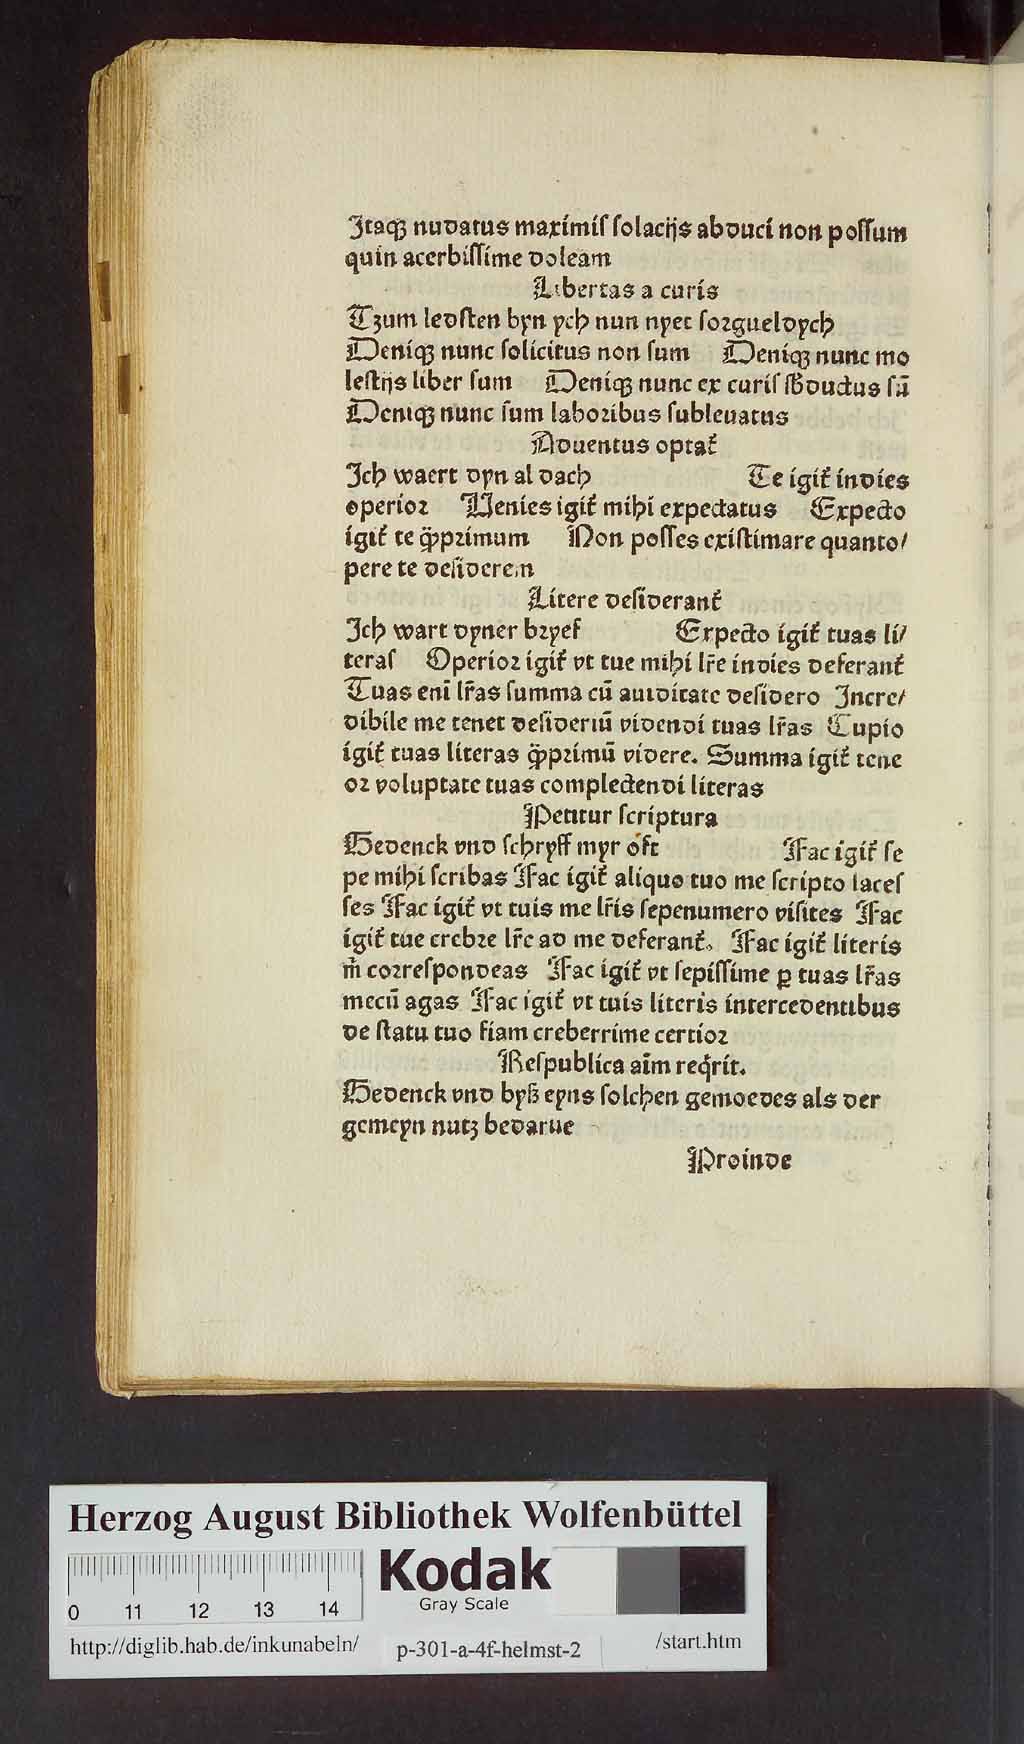 Itaqꝫ nudatus maximis solacijs abduci non possum
quin acerbissime doleam
Libertas a curis
Tzum ledsten byn ych nun nyet sorgueldych
Deniqꝫ nunc solicitus non sum Deniqꝫ nunc mo
lestijs liber sum Deniqꝫ nunc ex curis sbductus sū
Deniqꝫ nunc sum laboribus subleuatus
Aduentus optat᷑
Ich waert dyn al dach Te igit᷑ indies
operior Uenies igit᷑ mihi expectatus Expecto
igit᷑ te q̄pprimum Non posses existimare quanto/
pere te desiderem
Litere desiderant᷑
Ich wart dyner bryef Expecto igit᷑ tuas li/
teras Operior igit᷑ vt tue mihi lr̄e indies deferant᷑
Tuas enī lr̄as summa cū auiditate desidero Incre/
dibile me tenet desideriū videndi tuas lr̄as Cupio
igit᷑ tuas literas q̄pprimū videre. Summa igit᷑ tene
or voluptate tuas complectendi literas
Petitur scriptura
Gedenck vnd schryff myr oft Fac igit᷑ se
pe mihi scribas Fac igit᷑ aliquo tuo me scripto laces
ses Fac igit᷑ vt tuis me lr̄is sepenumero visites Fac
igit᷑ tue crebre lr̄e ad me deferant᷑. Fac igit᷑ literis
m̄ correspondeas Fac igit᷑ vt sepissime ꝑ tuas lr̄as
mecū agas Fac igit᷑ vt tuis literis intercedentibus
de statu tuo fiam creberrime certior
Respublica aīm reqͥrit.
Gedenck vnd byß eyns solchen gemoedes als der
gemeyn nutz bedarue
Proinde
Herzog August Bibliothek Wolfenbüttel
Kodak
Gray Scale
0 11 12 13 14
http://diglib.hab.de/inkunabeln/ p-301-a-4f-helmst-2 /start.htm